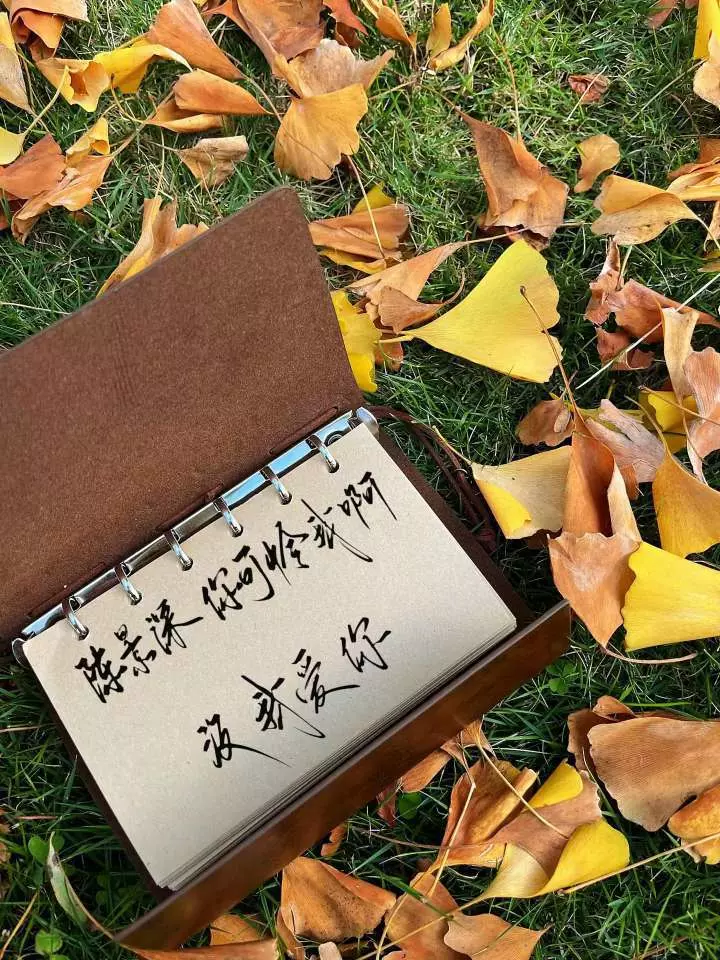 陈景深 你可怜我啊
没 我爱你